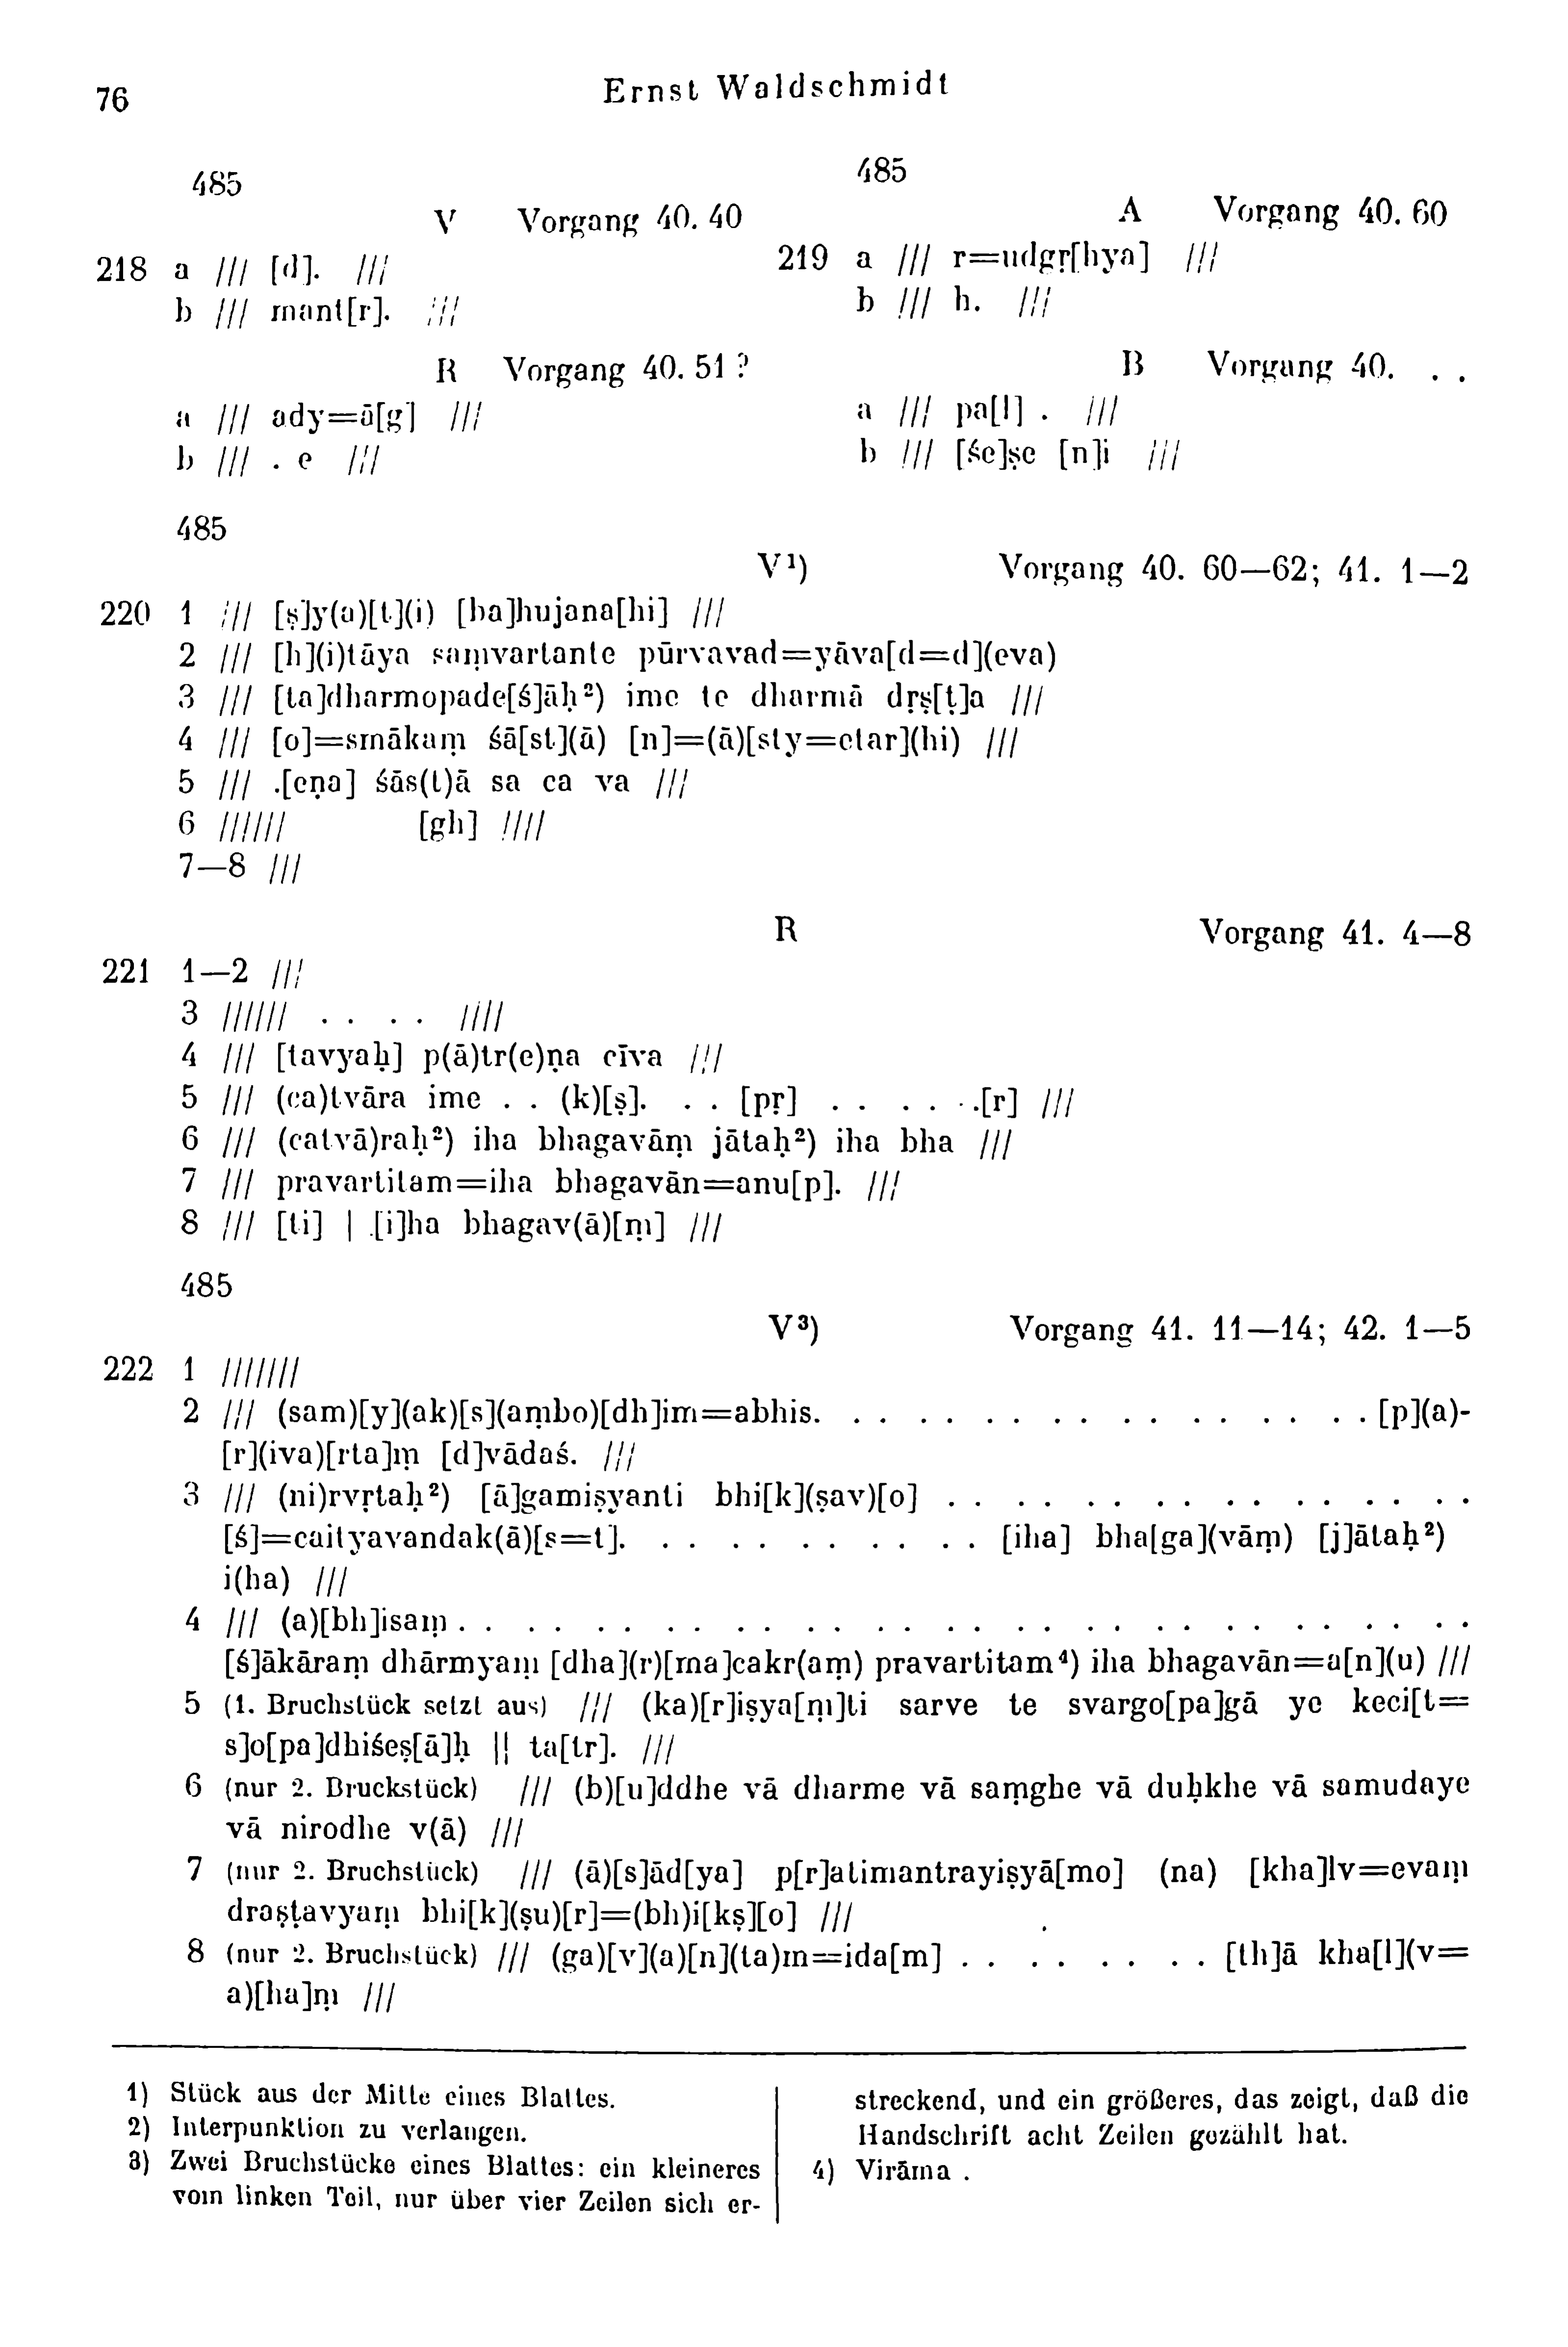 76
Ernst Waldschmidt
485
V Vorgang 40. 40
218 a /// [d]. ///
b /// mant[r]. ///
R Vorgang 40. 51 ?
a /// ady=ā[g] ///
b /// . e ///
485
A Vorgang 40. 60
219 a /// r=udgṛ[hya] ///
b /// h. ///
B Vorgang 40. . .
a /// pa[l] . ///
b /// [śe]ṣe [n]i ///
485
V¹) Vorgang 40. 60—62; 41. 1—2
220 1 /// [ṣ]y(a)[t](i) [ba]hujana[hi] ///
2 /// [h](i)tāya saṃvartante pūrvavad=yāva[d=d](eva)
3 /// [ta]dharmopade[ś]āḥ²) ime te dharmā dṛṣ[ṭ]a ///
4 /// [o]=smākaṃ śā[st](ā) [n]=(ā)[sty=etar](hi) ///
5 /// .[eṇa] śās(t)ā sa ca va ///
6 ////// [gh] ////
7—8 ///
R Vorgang 41. 4—8
221 1—2 ///
3 ////// . . . . ////
4 /// [tavyaḥ] p(ā)tr(e)ṇa cīva ///
5 /// (ca)tvāra ime . . (k)[ṣ]. . . [pṛ] . . . . . .[r] ///
6 /// (catvā)raḥ²) iha bhagavāṃ jātaḥ²) iha bha ///
7 /// pravartitam=iha bhagavān=anu[p]. ///
8 /// [ti] | [i]ha bhagav(ā)[ṃ] ///
485
V³) Vorgang 41. 11—14; 42. 1—5
222 1 ///////
2 /// (sam)[y](ak)[s](aṃbo)[dh]im=abhis. . . . . . . . . . . . . . . . . [p](a)-
[r](iva)[rta]ṃ [d]vādaś. ///
3 /// (ni)rvṛtaḥ²) [ā]gamiṣyanti bhi[k](ṣav)[o] . . . . . . . . . . . . . . . .
[ś]=caityavandak(ā)[s=t]. . . . . . . . . . . [iha] bha[ga](vāṃ) [j]ātaḥ²)
i(ha) ///
4 /// (a)[bh]isaṃ . . . . . . . . . . . . . . . . . . . . . . . . . . . . . .
[ś]ākāraṃ dhārmyaṃ [dha](r)[ma]cakr(aṃ) pravartitam⁴) iha bhagavān=a[n](u) ///
5 (1. Bruchstück setzt aus) /// (ka)[r]iṣya[ṃ]ti sarve te svargo[pa]gā ye keci[t=
s]o[pa]dhiśeṣ[ā]ḥ || ta[tr]. ///
6 (nur 2. Bruckstück) /// (b)[u]ddhe vā dharme vā saṃghe vā duḥkhe vā samudaye
vā nirodhe v(ā) ///
7 (nur 2. Bruchstück) /// (ā)[s]ād[ya] p[r]atimantrayiṣyā[mo] (na) [kha]lv=evaṃ
draṣṭavyaṃ bhi[k](ṣu)[r]=(bh)i[kṣ][o] ///
8 (nur 2. Bruchstück) /// (ga)[v](a)[n](ta)m=ida[m] . . . . . . . . [th]ā kha[l](v=
a)[ha]ṃ ///
1) Stück aus der Mitte eines Blattes.
2) Interpunktion zu verlangen.
3) Zwei Bruchstücke eines Blattes: ein kleineres
vom linken Teil, nur über vier Zeilen sich er-
streckend, und ein größeres, das zeigt, daß die
Handschrift acht Zeilen gezählt hat.
4) Virāma .